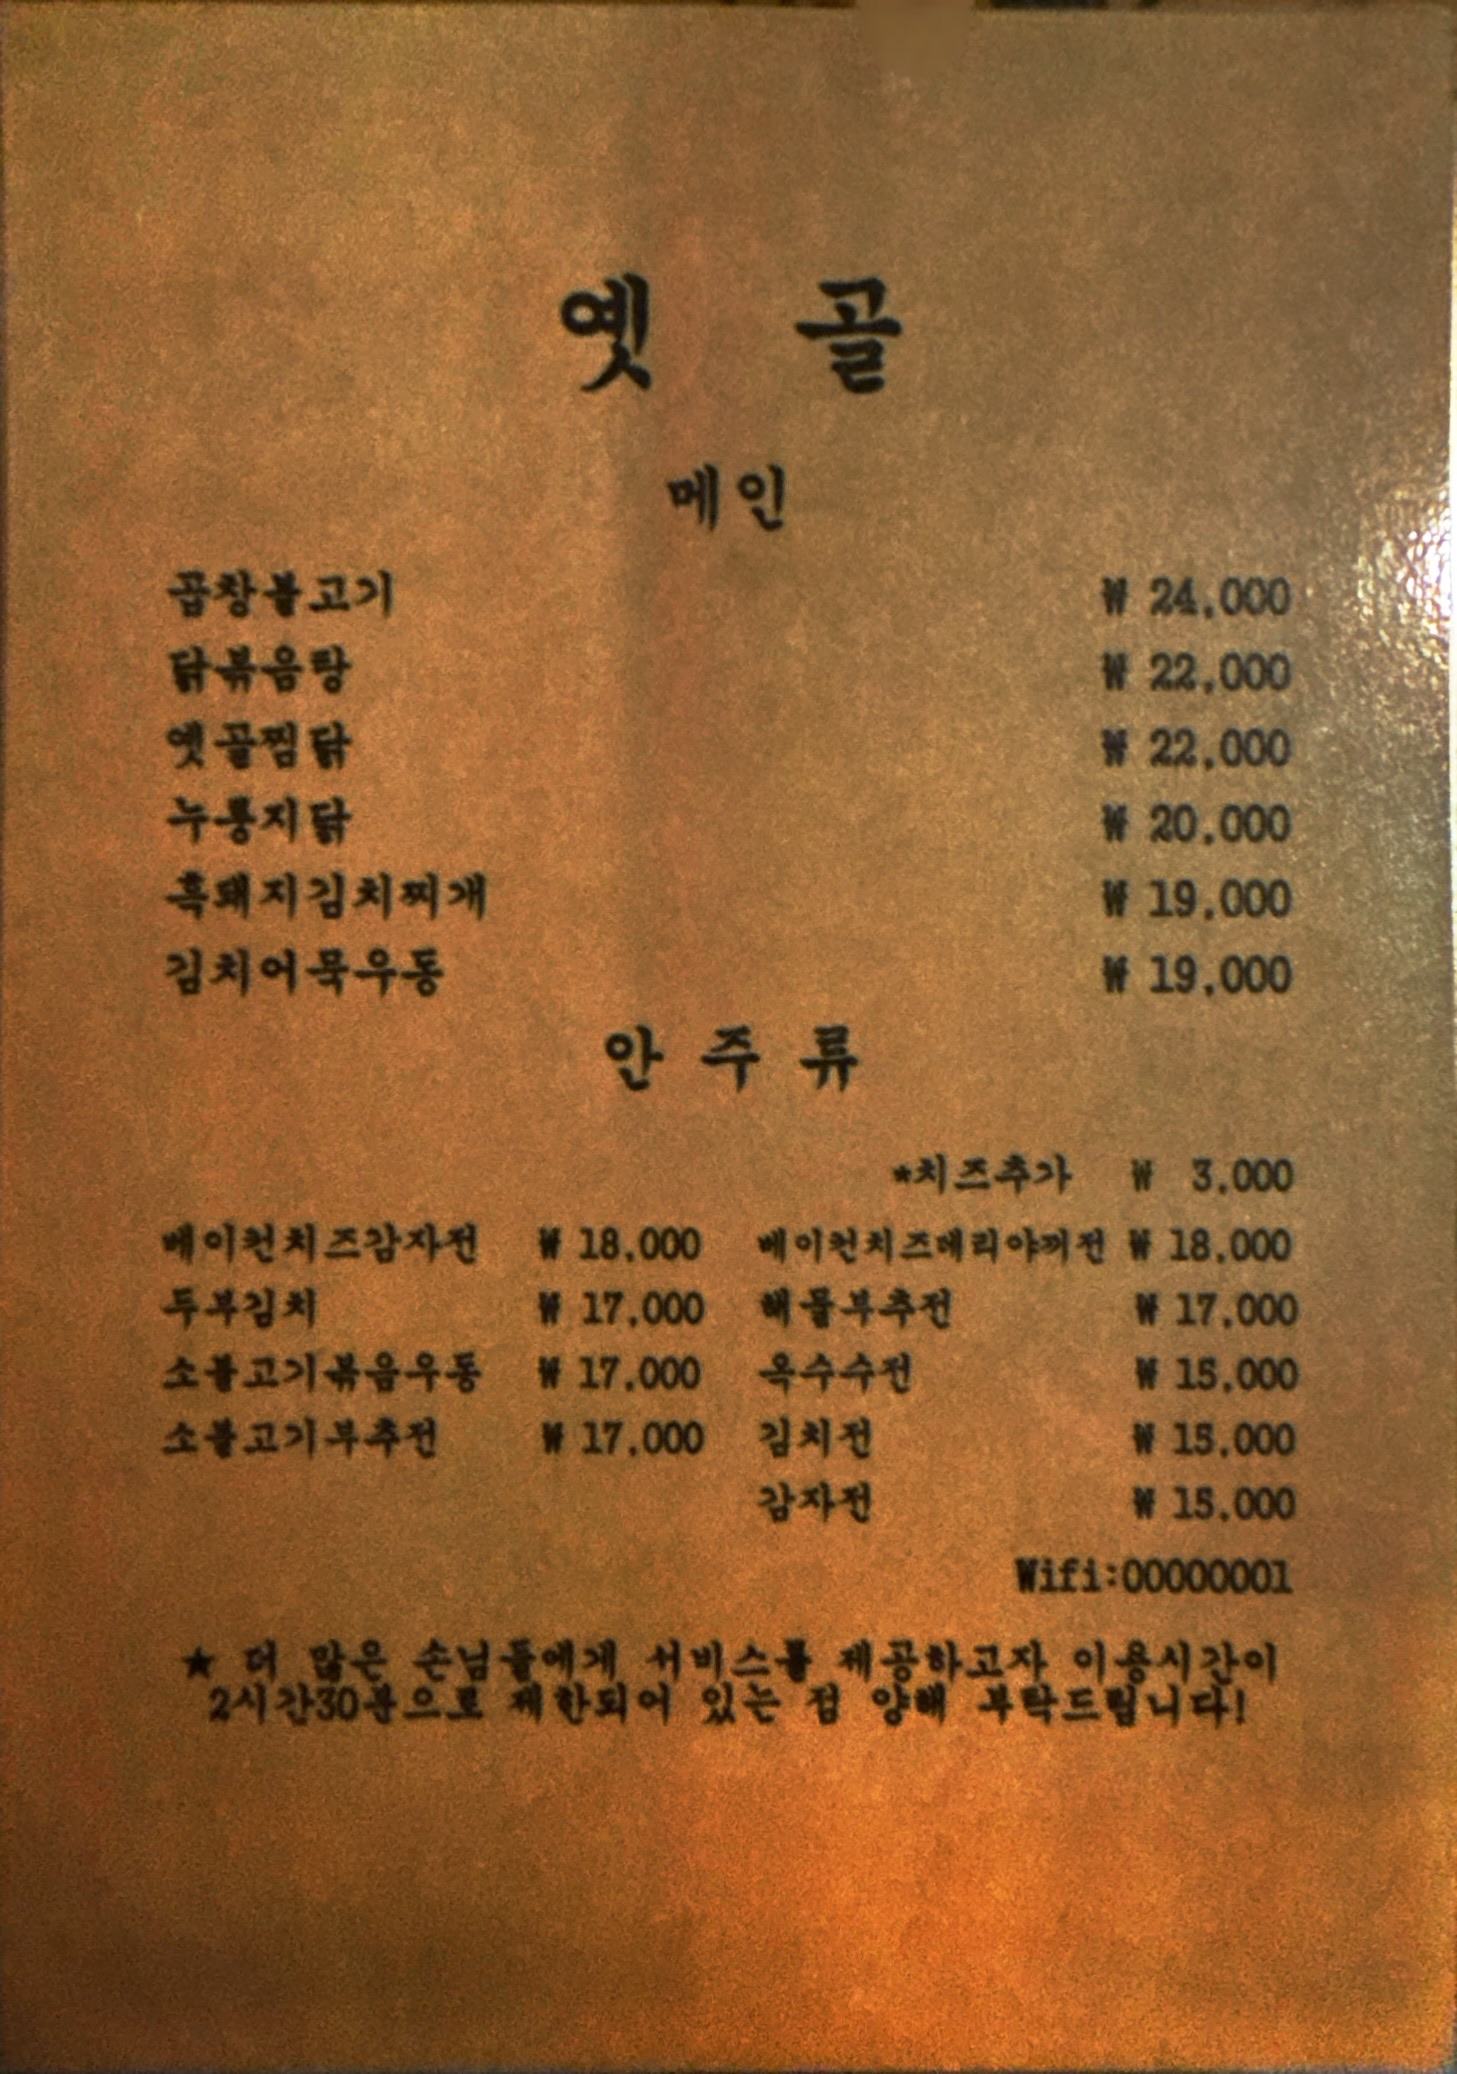 옛 골
메인
곱창불고기 ₩ 24,000
닭볶음탕 ₩ 22,000
옛골찜닭 ₩ 22,000
누룽지닭 ₩ 20,000
흑돼지김치찌개 ₩ 19,000
김치어묵우동 ₩ 19,000
안주류
*치즈추가 ₩ 3,000
베이컨치즈감자전 ₩ 18,000 베이컨치즈데리야끼전 ₩ 18,000
두부김치 ₩ 17,000 해물부추전 ₩ 17,000
소불고기볶음우동 ₩ 17,000 옥수수전 ₩ 15,000
소불고기부추전 ₩ 17,000 김치전 ₩ 15,000
감자전 ₩ 15,000
Wifi:00000001
★ 더 많은 손님들에게 서비스를 제공하고자 이용시간이
2시간30분으로 제한되어 있는 점 양해 부탁드립니다!